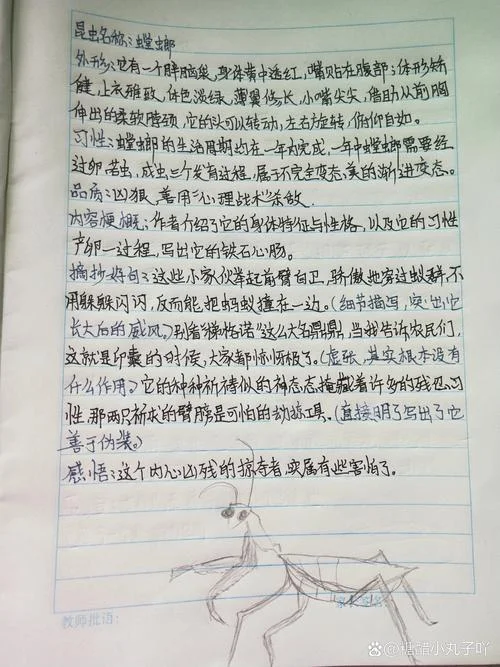 昆虫名称:螳螂
外形:它有一个胖脑袋,身体黄中透红,嘴贴在腹部;体形矫
健,上衣雅致,体色淡绿,薄翼修长,小嘴尖尖,借助从前胸
伸出的柔软脖颈,它的头可以转动,左右旋转,俯仰自如。
习性:螳螂的生活周期均在一年内完成,一年中螳螂需要经
过卵、若虫,成虫三个发育过程,属于不完全变态,美的渐进变态。
品质:凶狠,善用“心理战术”杀敌
内容梗概:作者介绍了它的身体特征与性格,以及它的习性
产卵一过程,写出它的铁石心肠。
摘抄好句:这些小家伙举起前臂自卫,骄傲地穿过蚁群,不
用躲躲闪闪,反而能把蚂蚁撞在一边。(细节描写,突出它
长大后的威风。)别看“梯格诺”这么大名鼎鼎,当我告诉农民们,
这就是卵囊的时候,大家都惊讶极了。(虚张,其实根本没有
什么作用。)它的种种祈祷似的神态态,掩藏着许多的残忍习
性,那两只祈求的臂膀是可怕的劫掠工具。(直接明了写出了它
善于伪装。)
感悟:这个内心凶残的掠夺者,实属有些害怕了。
教师批语:
@糖醋小丸子吖